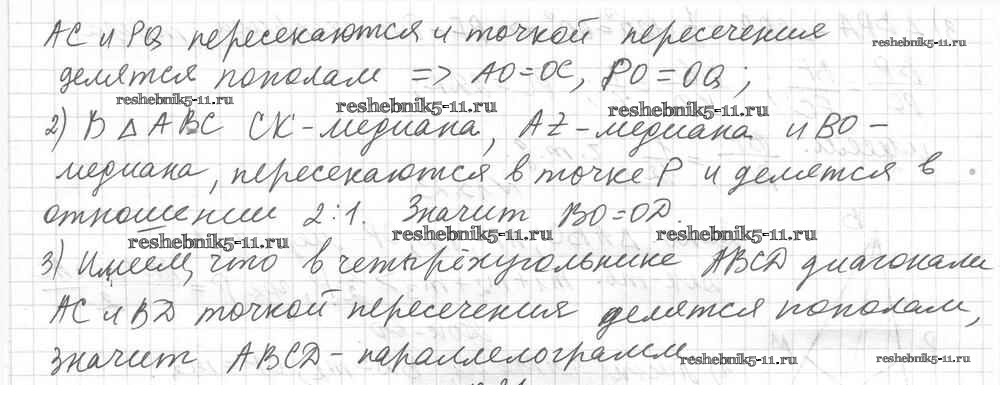 AC и PQ пересекаются и точкой пересечения
reshebnik5-11.ru
делятся пополам => AO=OC, PO=OQ;
reshebnik5-11.ru
reshebnik5-11.ru
reshebnik5-11.ru
2) В △ABC CK-медиана, AZ-медиана и BO-
медиана, пересекаются в точке P и делятся в
отношении 2:1. Значит BO=OD.
reshebnik5-11.ru
reshebnik5-11.ru
reshebnik5-11.ru
3) Имеем, что в четырёхугольнике ABCD диагонали
AC и BD точкой пересечения делятся пополам,
значит ABCD-параллелограмм
reshebnik5-11.ru
reshebnik5-11.ru